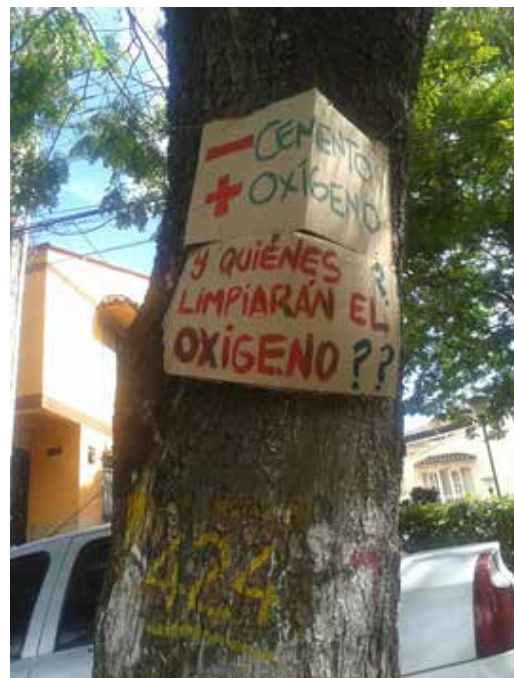 − CEMENTO
+ OXÍGENO
Y QUIÉNES ?
LIMPIARÁN EL
OXÍGENO ??
424